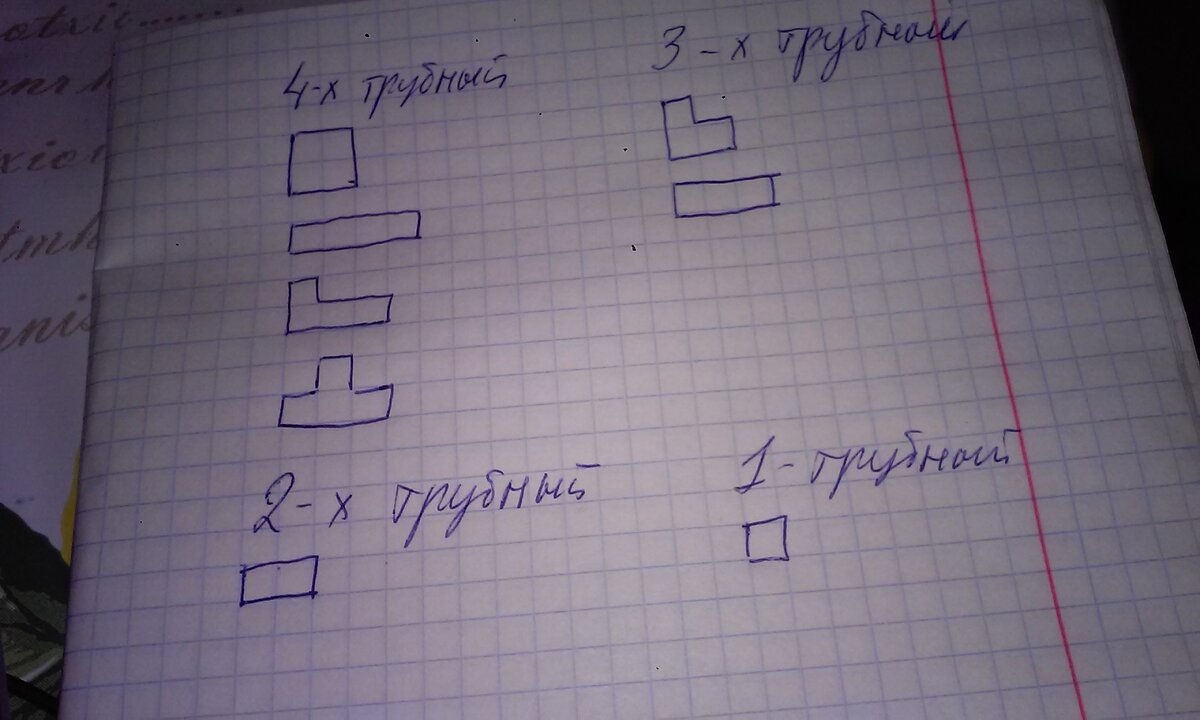 4-х трубный
3-х трубный
2-х трубный
1-трубный